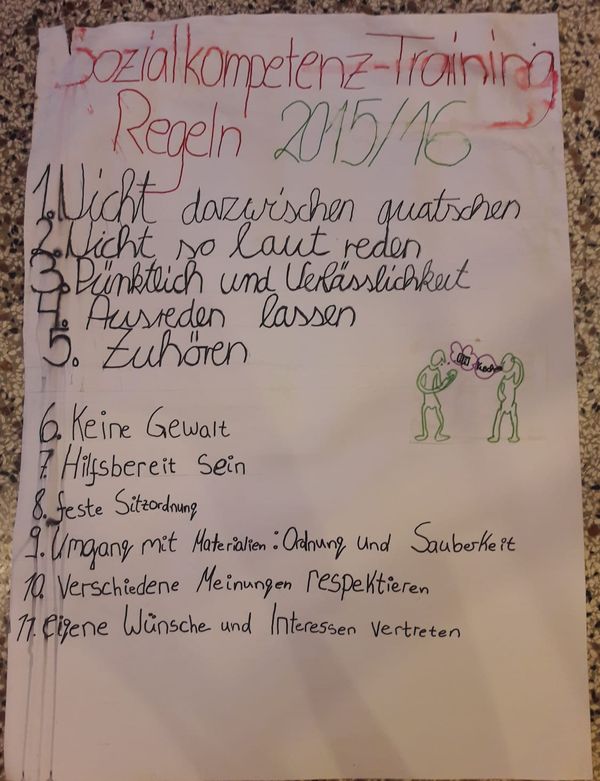 Sozialkompetenz-Training
Regeln 2015/16
1. Nicht dazwischen quatschen
2. Nicht so laut reden
3. Pünktlich und Verlässlichkeit
4. Ausreden lassen
5. Zuhören
6. Keine Gewalt
7. Hilfsbereit sein
8. feste Sitzordnung
9. Umgang mit Materialien: Ordnung und Sauberkeit
10. Verschiedene Meinungen respektieren
11. eigene Wünsche und Interessen vertreten